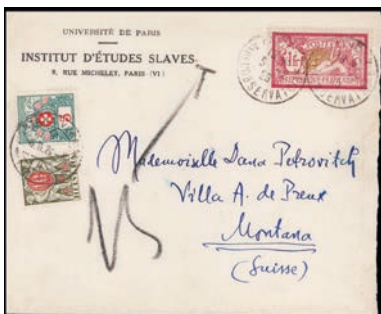 UNIVERSITÉ DE PARIS
INSTITUT D'ÉTUDES SLAVES
9, RUE MICHELET, PARIS (VI)
T
Mademoiselle Dana Petrovitch
Villa A. de Preux
Montana
(Suisse)